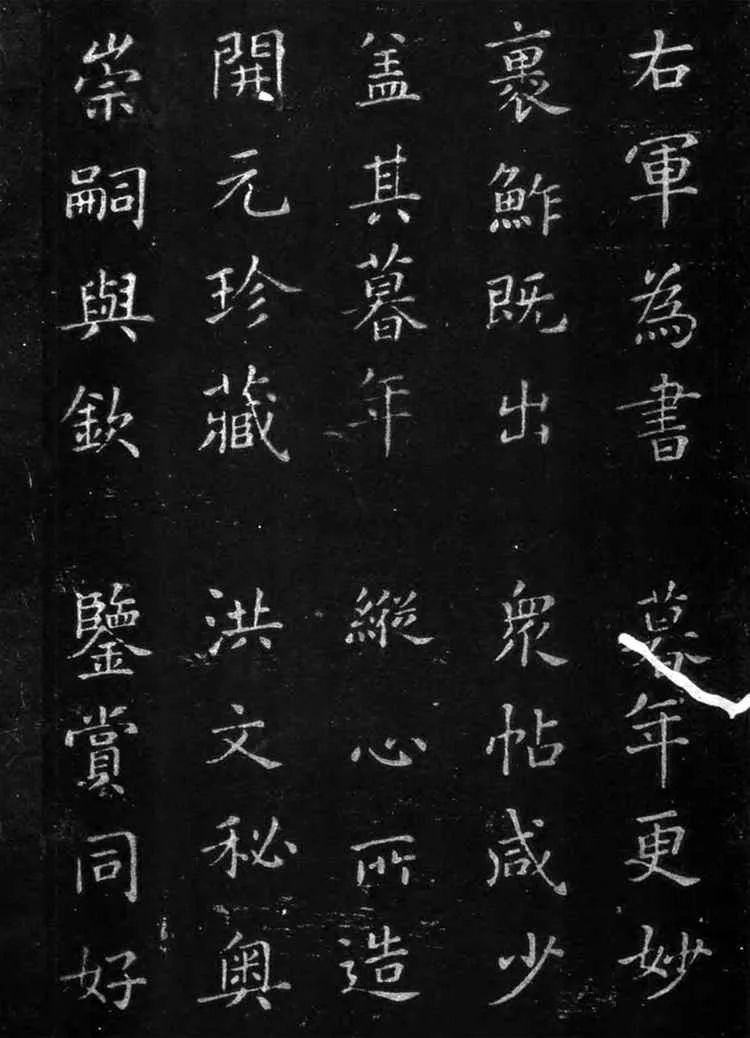 右軍為書 暮年更妙
裹鮓既出 衆帖咸少
盖其暮年 縱心所造
開元珍藏 洪文秘奥
崇嗣與欽 鑒賞同好